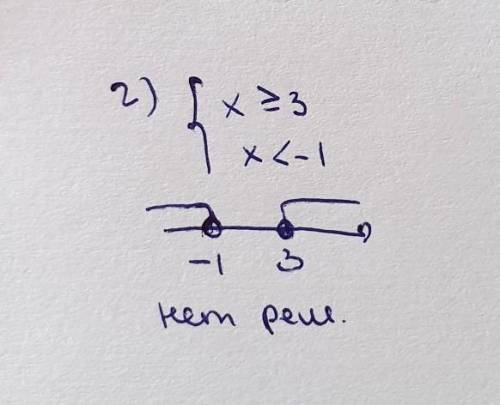 2) { x ≥ 3
x < -1
-1 3
нет реш.